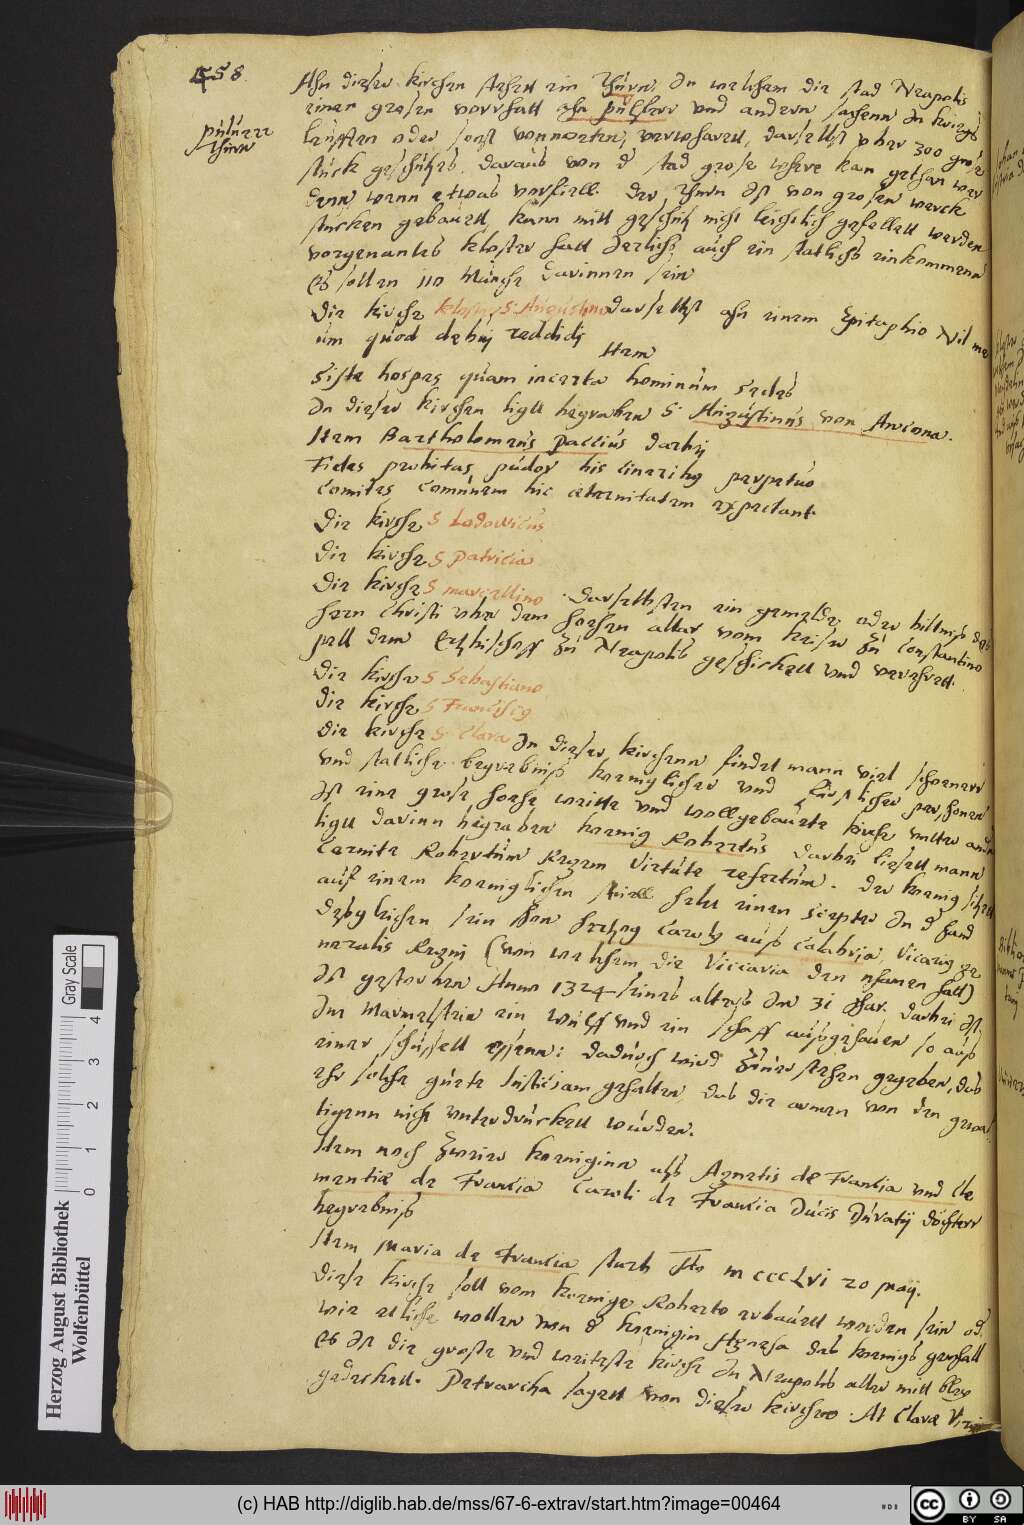 458.
An dieser kirchen stehett ein Thurn, In welchem die stad Neapolis
einen grosen vorrhatt ahn pulffer und andern sachenn In kriegs
pulfferr
Thurn
leufften oder sonst vonnoethen, verwharett, darselbst uber 300 grose
stuck geschutzes, daraus von d stad grose where kan gethan wer
denn wenn etwas vorfielle. Der Thurn Ist von grosen werck
stucken gebauett, kann mitt geschutz nicht leichtlich gefellett werden
vorgenantes kloster hatt Jerlich auch ein statlichs einkommenn
Es sollen 110 Münche darinnen sein
Die kirche kloster S. Augustino darselbst ahn einem Epitaphio Nil me
um quod debuj reddidj
Item
Siste hospes quam incerta hominum sedes
In dieser kirchen ligtt begraben S. Augustinus von Ancona.
Item Bartholomeus Paccius darbej
Fides probitas pudor his cineribus perpetuo
Comites communem hic aeternitatem expectant.
Die kirche S Lodowicus
Die kirche S Patricia
Die kirche S marcellino. Darselbsten ein gemelde oder biltnis des
hern Christi uber dem hoehen altar vom keiser zu Constantino
pell dem Ertzbischoff zu Neapolis geschickett und verehrett.
Die kirche S Sebastiano
Die kirche S Francisco
Die kirche S Clara In dieser kirchenn findet mann viel schoenerr
und statliche begrebniss koeniglicher und fürstlicher personen
Ist eine grose hoehe weitte und wollgebauete kirche unter andn
ligtt darinn begraben koenig Robertus darbei liesett mann
Cernite Robertum Regem Virtute refertum. der koenig sitzett
auff einem koeniglichen stuell helt einen Scepter In d hand
Desgleichen sein sohn hertzog Carols auss Calabria, Vicarius ge
neralis Regni (von welchem die Viccaria den nhamen hatt)
Ist gestorben Anno 1324 seines alters Im 31 Jhar. darbei Ist
Im Marmelstein ein Wulff und ein schaff aussgehauen so auss
einer schussell essenn: dadurch wird zuuerstehen gegeben, das
ehr solche guete Justiciam gehalten, das die armen von den gewal
tigenn nicht unterdruckett wurden.
Item noch zweier koeniginn alss Agnetis de Francia und Cle
mentiae de Francia Caroli de Francia Ducis Duratij döchterr
begrebniss
Item Maria de Francia starb Ao MCCCLVI 20 Maij.
Diese kirche soll vom koenige Roberto erbauett worden sein od.
wie etliche wollen von d koenigin Agnesa des koenigs gemhall
Es Ist die groste und weiteste kirche In Neapolis aller mitt bley
gedeckett. Petrarcha sagett von dieser kirchen. At Clarae Virgi
Herzog August Bibliothek
Wolfenbüttel
Gray Scale
0 1 2 3 4
(c) HAB http://diglib.hab.de/mss/67-6-extrav/start.htm?image=00464
cc BY SA